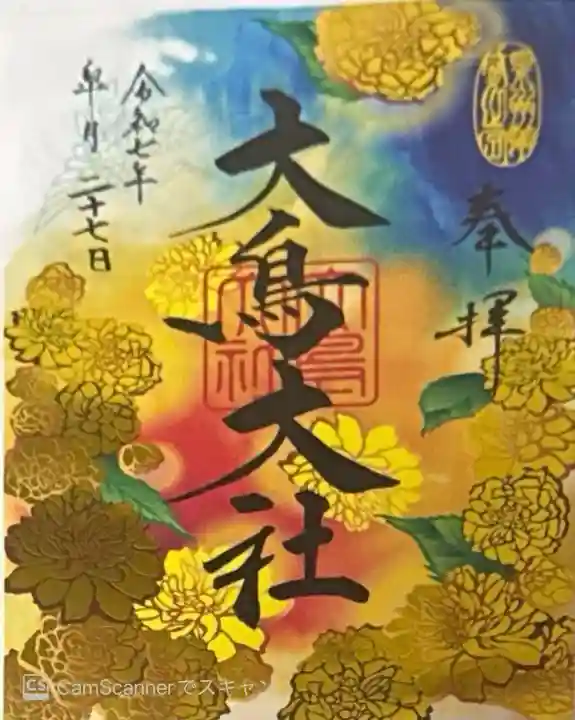 奉拝
大鳥大社
令和七年
皐月二十七日
CS CamScannerでスキャン